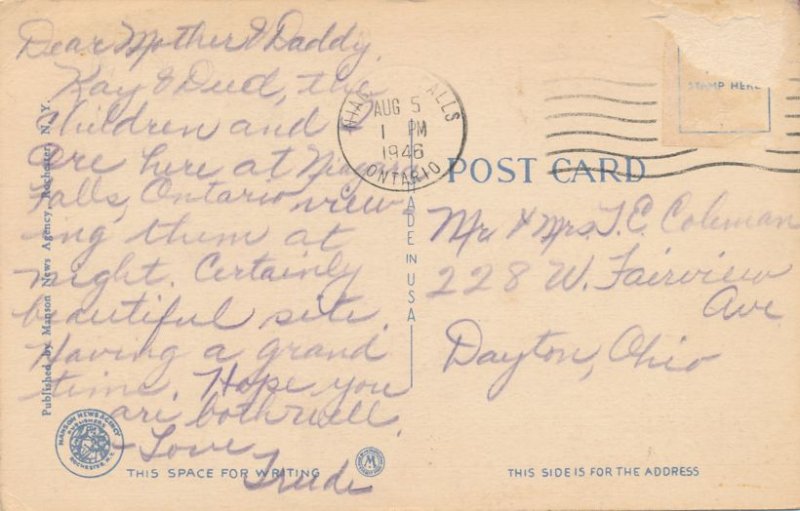 Dear Mother & Daddy,
Kay & Dud, the
children and I
are here at Niagara
Falls, Ontario view-
ing them at
night. Certainly
beautiful site.
Having a grand
time. Hope you
are both well.
Love
Trude
Published by Manson News Agency, Rochester, N. Y.
MANSON NEWS AGENCY
PUBLISHERS
ROCHESTER, N.Y.
THIS SPACE FOR WRITING
NIAG ALLS
AUG 5
1 PM
1946
ONTARIO
STAMP HERE
POST CARD
MADE IN USA
Mr & Mrs. T. E. Coleman
228 W. Fairview
Ave
Dayton, Ohio
THIS SIDE IS FOR THE ADDRESS